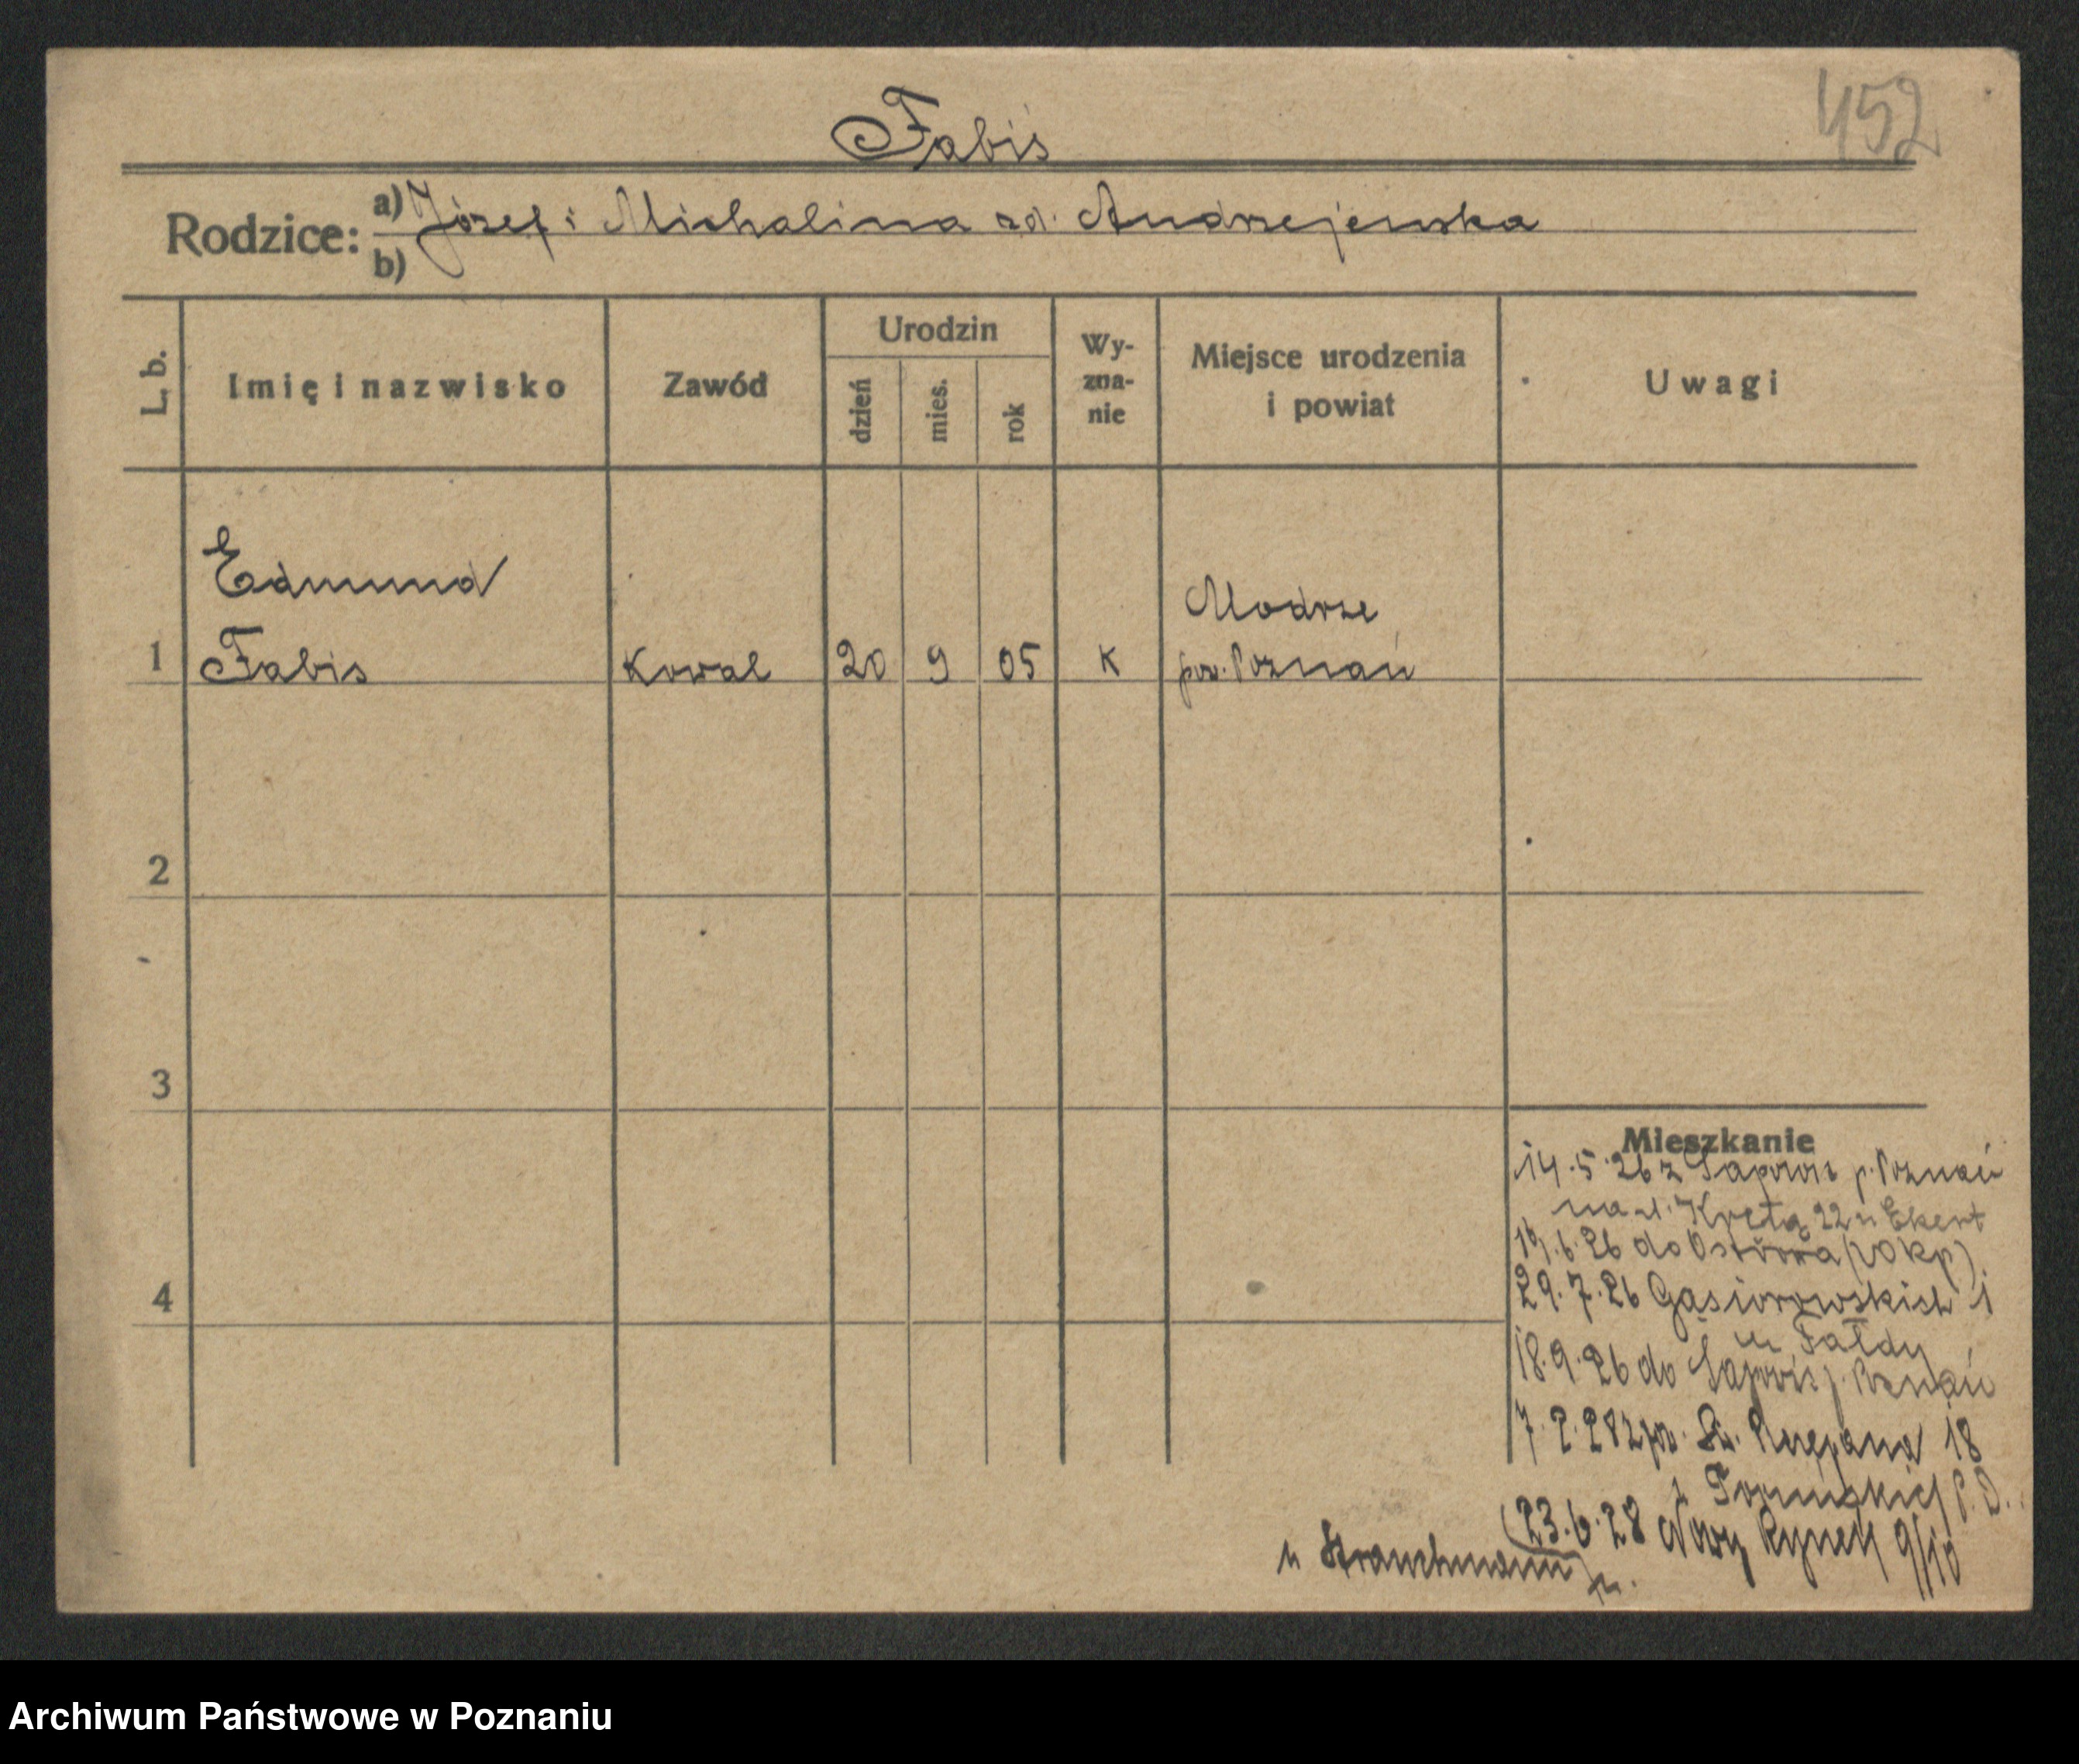 452
Fabiś
Rodzice: a) Józef i Michalina zd. Andrzejewska
b)
L. b.
Imię i nazwisko
Zawód
Urodzin
dzień
mies.
rok
Wy-
zna-
nie
Miejsce urodzenia
i powiat
Uwagi
Edmund
Modrze
1 Fabis Kowal 20 9 05 K pow. Poznań
2
3
4
Mieszkanie
14.5.26 z p. Poznań
na ul. Krętą 22 u Ekert
19.6.26 do Ostrowa
29.7.26 Gąsiorowskich 1
u Fałdy
18.9.26 do p. Poznań
7.2.28 z Św. 18
23.6.28 Nowy Rynek 9/10
u
Archiwum Państwowe w Poznaniu